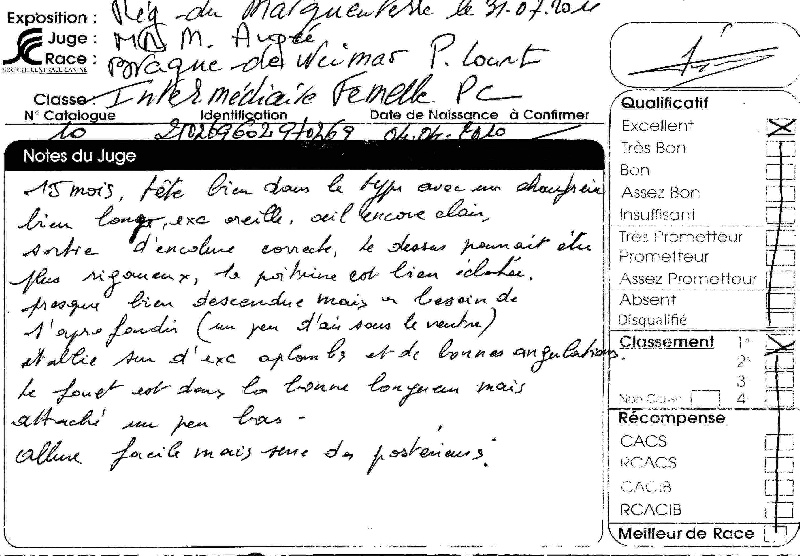 Exposition : Rég. du Marquenterre le 31.07.2011
Juge : M. André
Race : Braque de Weimar P. Court
SOCIETE CENTRALE CANINE
Classe : Intermédiaire Femelle PC
N° Catalogue Identification Date de Naissance à Confirmer
10 04.04.2010
Notes du Juge
15 mois, tête bien dans le type avec un chanfrein
bien long, exc oreille, œil encore clair,
sortie d'encolure correcte, le dessus pourrait être
plus rigoureux, la poitrine est bien éclatée.
presque bien descendue mais a besoin de
s'approfondir (un peu d'air sous le ventre)
établie sur d'exc aplombs et de bonnes angulations.
le fouet est dans la bonne longueur mais
attaché un peu bas -
allure facile mais serre des postérieurs.
Qualificatif
Excellent
Très Bon
Bon
Assez Bon
Insuffisant
Très Prometteur
Prometteur
Assez Prometteur
Absent
Disqualifié
Classement 1°
2°
3
Non Classé 4
Récompense
CACS
RCACS
CACIB
RCACIB
Meilleur de Race